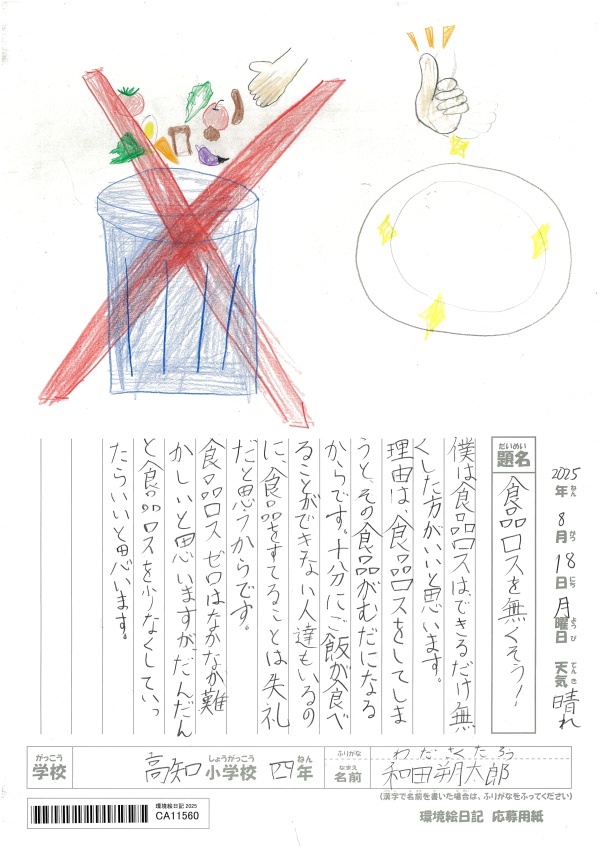 2025年ねん 8月がつ 18日にち 月曜日ようび 天気てんき 晴れ
だいめい
題名
食品ロスを無くそう！
僕は食品ロスは、できるだけ無
くした方がいいと思います。
理由は、食品ロスをしてしま
うと、その食品がむだになる
からです。十分にご飯が食べ
ることができない人達もいるの
に、食品をすてることは失礼
だと思うからです。
食品ロス ゼロはなかなか難
かしいと思いますがだんだん
と食品ロスを少なくしていっ
たらいいと思います。
がっこう
学校
高知
しょうがっこう
小学校
四
ねん
年
ふりがな
わだ さくたろう
なまえ
名前
和田朔太郎
(漢字で名前を書いた場合は、ふりがなをふってください)
環境絵日記 応募用紙
環境絵日記 2025
CA11560